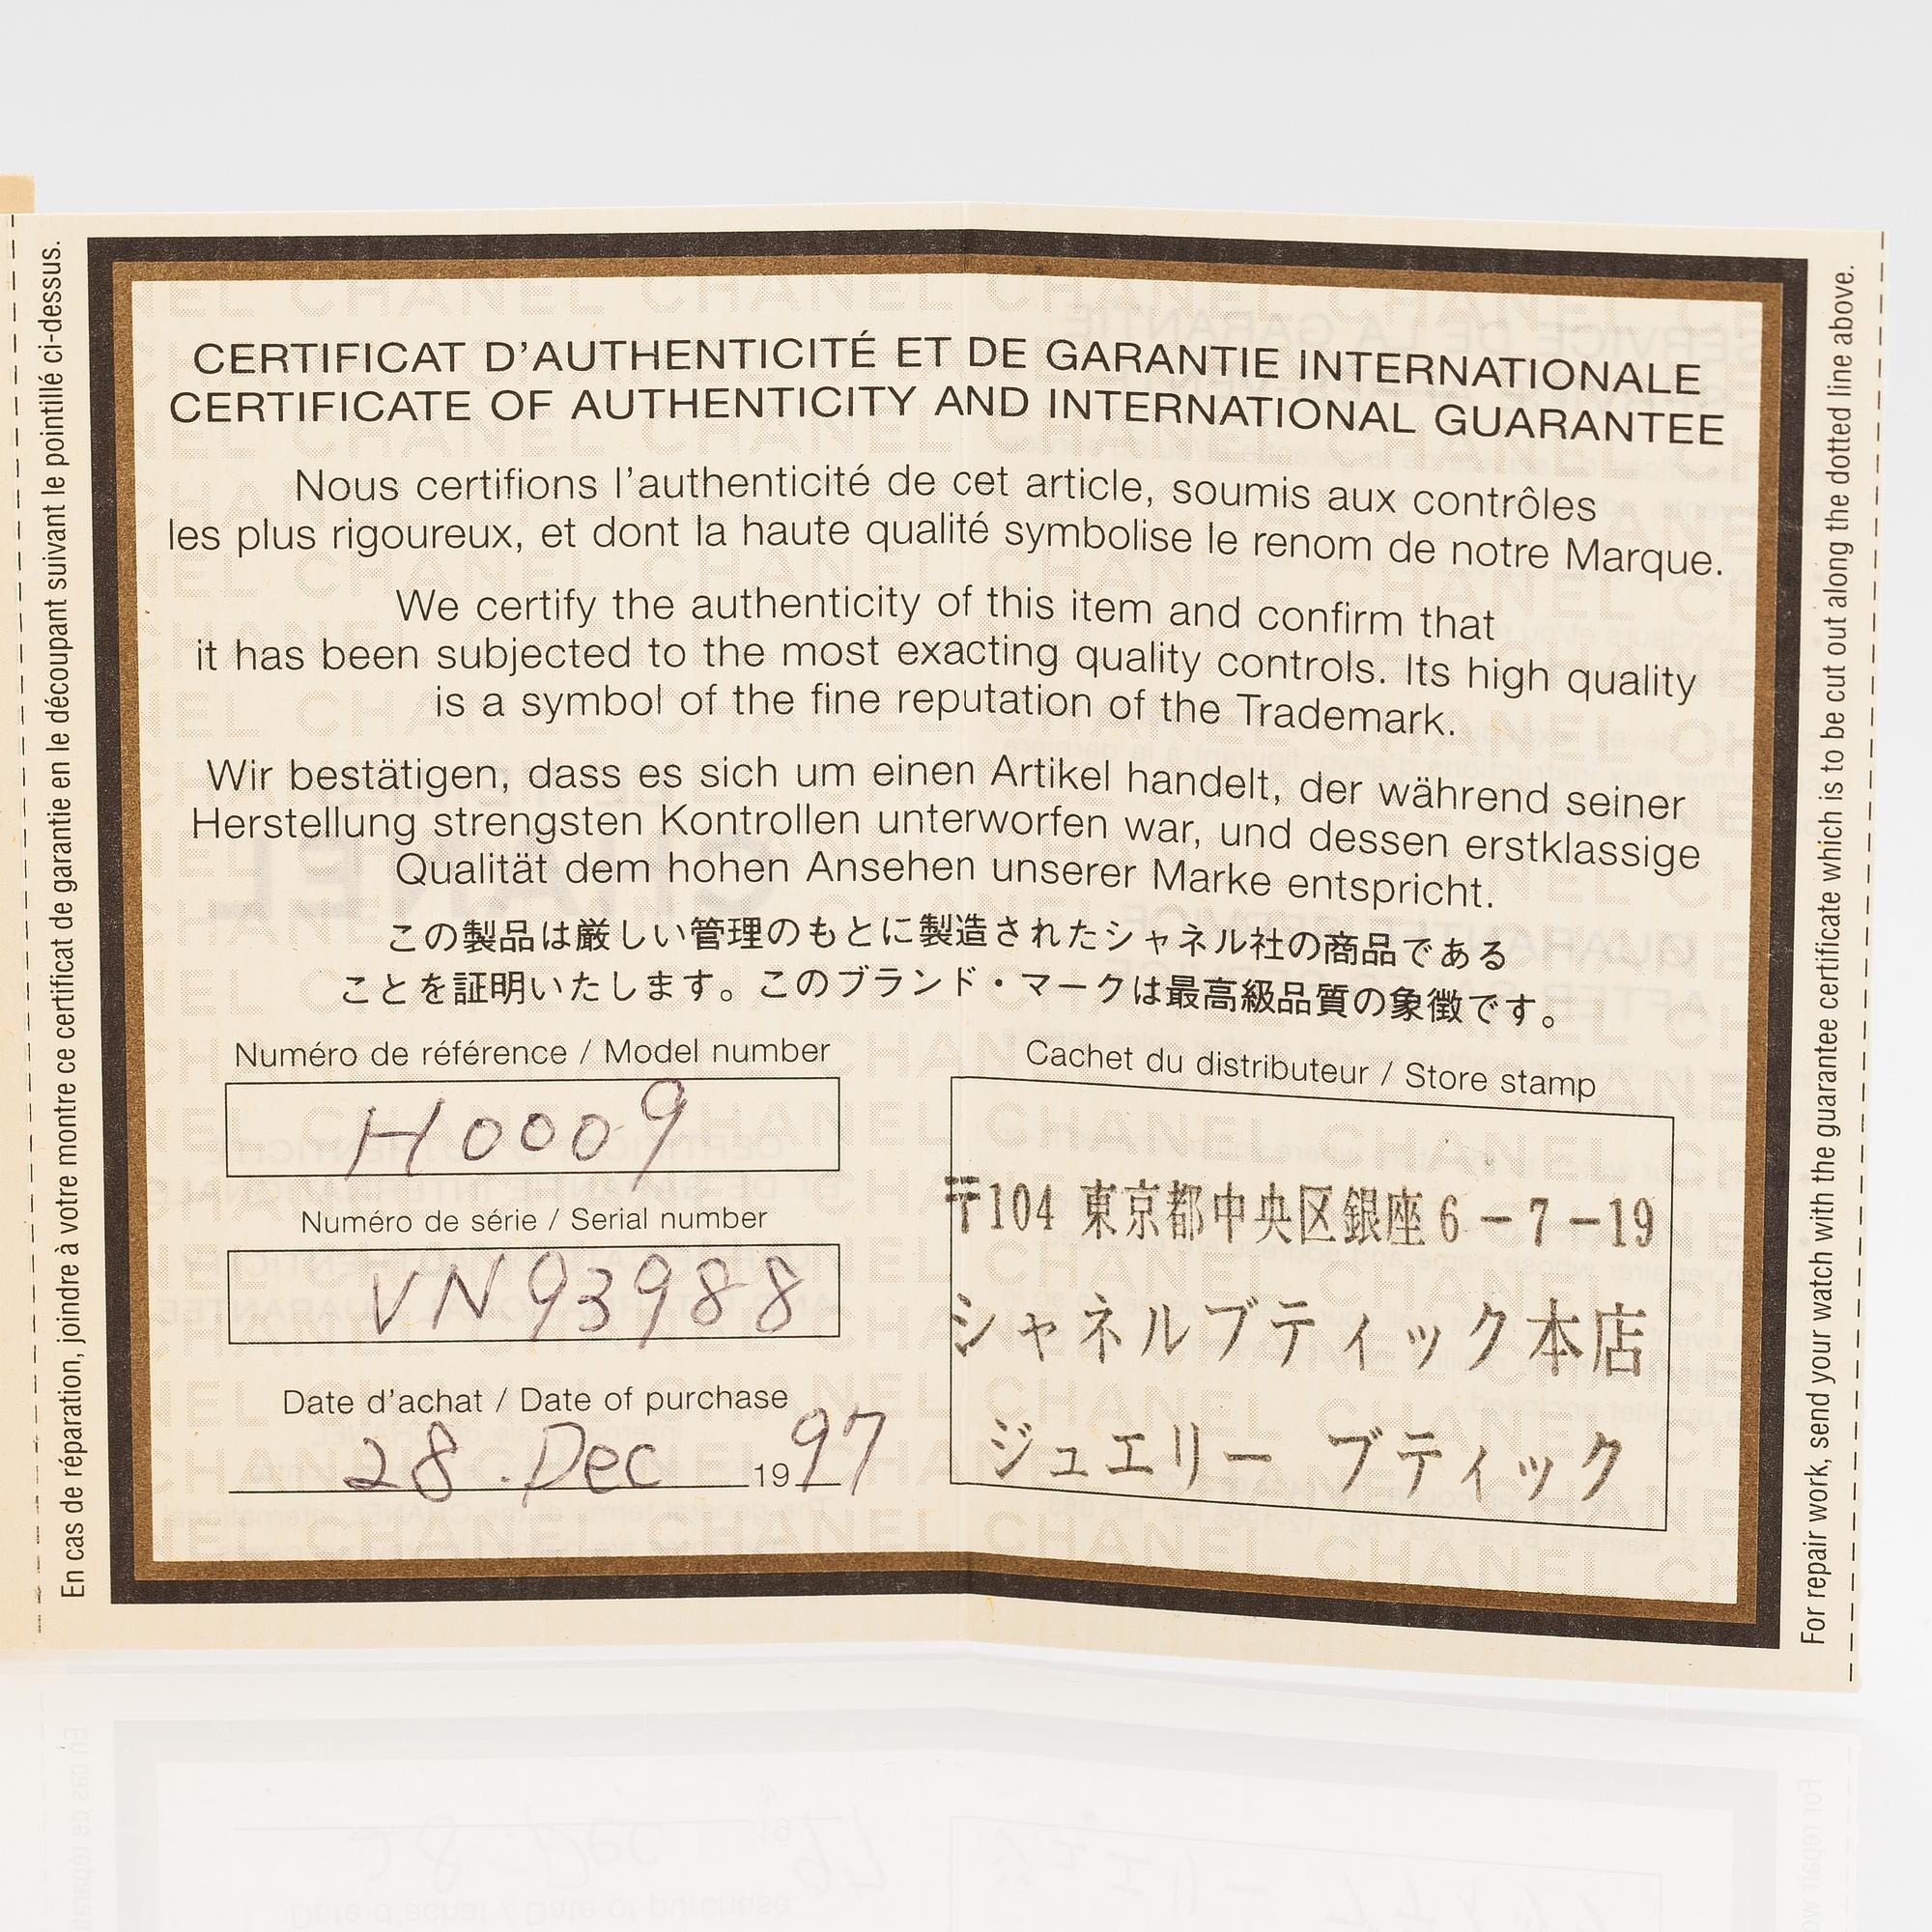 En cas de réparation, joindre à votre montre ce certificat de garantie en le découpant suivant le pointillé ci-dessus.
CERTIFICAT D'AUTHENTICITÉ ET DE GARANTIE INTERNATIONALE
CERTIFICATE OF AUTHENTICITY AND INTERNATIONAL GUARANTEE
Nous certifions l'authenticité de cet article, soumis aux contrôles
les plus rigoureux, et dont la haute qualité symbolise le renom de notre Marque.
We certify the authenticity of this item and confirm that
it has been subjected to the most exacting quality controls. Its high quality
is a symbol of the fine reputation of the Trademark.
Wir bestätigen, dass es sich um einen Artikel handelt, der während seiner
Herstellung strengsten Kontrollen unterworfen war, und dessen erstklassige
Qualität dem hohen Ansehen unserer Marke entspricht.
この製品は厳しい管理のもとに製造されたシャネル社の商品である
ことを証明いたします。このブランド・マークは最高級品質の象徴です。
Numéro de référence / Model number
H0009
Numéro de série / Serial number
VN93988
Date d'achat / Date of purchase
28. Dec 1997
Cachet du distributeur / Store stamp
〒104 東京都中央区銀座6-7-19
シャネルブティック本店
ジュエリー ブティック
For repair work, send your watch with the guarantee certificate which is to be cut out along the dotted line above.